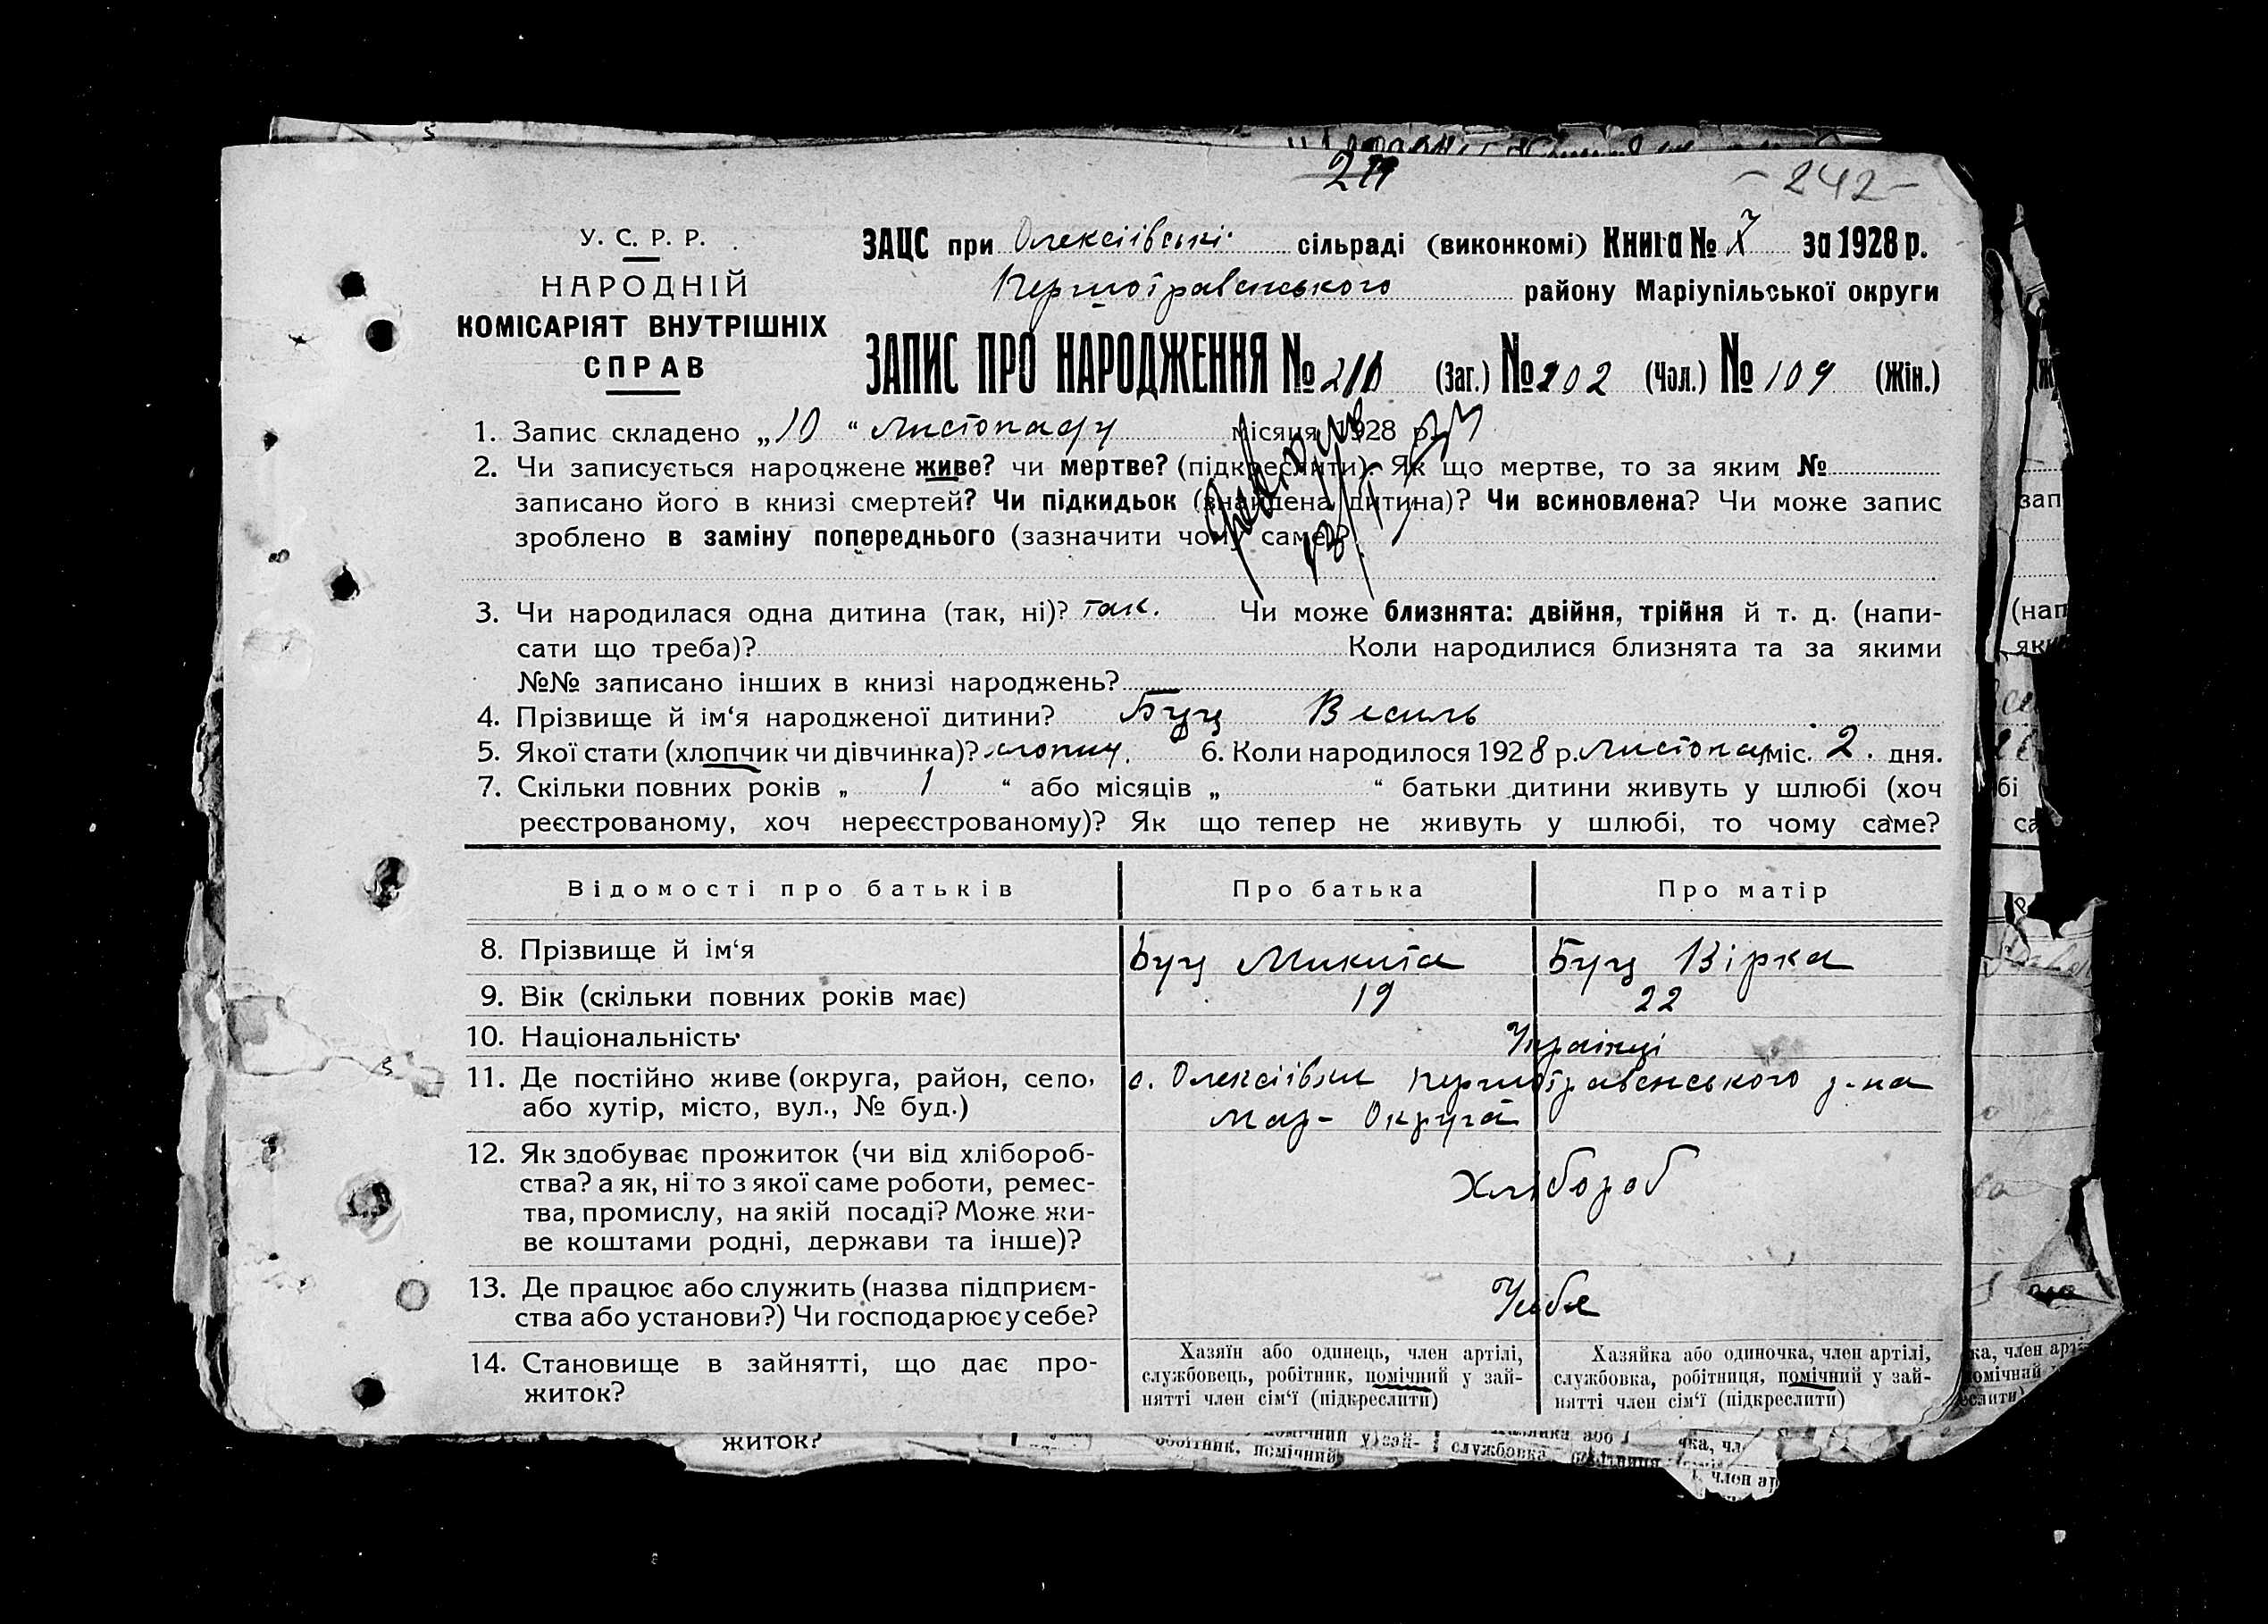 - 242 -
У. С. Р. Р.
НАРОДНІЙ
КОМІСАРІЯТ ВНУТРІШНІХ
СПРАВ
ЗАЦС при Олексіївські сільраді (виконкомі) Книга № за 1928 р.
Першотравенського району Маріупільської округи
ЗАПИС ПРО НАРОДЖЕННЯ № (Заг.) № 102 (Чол.) № 109 (Жін.)
1. Запис складено „10“ листопаду місяця 1928 р.
2. Чи записується народжене живе? чи мертве? (підкреслити). Як що мертве, то за яким №
записано його в книзі смертей? Чи підкидьок (знайдена дитина)? Чи всиновлена? Чи може запис
зроблено в заміну попереднього (зазначити чому саме)?
3. Чи народилася одна дитина (так, ні)? так. Чи може близнята: двійня, трійня й т. д. (напи-
сати що треба)? Коли народилися близнята та за якими
№№ записано інших в книзі народжень?
4. Прізвище й ім‘я народженої дитини? Буц Василь
5. Якої стати (хлопчик чи дівчинка)? хлопчик. 6. Коли народилося 1928 р. листопад міс. 2. дня.
7. Скільки повних років „ 1 “ або місяців „ “ батьки дитини живуть у шлюбі (хоч
реєстрованому, хоч нереєстрованому)? Як що тепер не живуть у шлюбі, то чому саме?
Відомості про батьків Про батька Про матір
8. Прізвище й ім‘я Буц Микита Буц Вірка
9. Вік (скільки повних років має) 19 22
10. Національність Українці
11. Де постійно живе (округа, район, село, с. Олексіївки Першотравенського р-на
або хутір, місто, вул., № буд.) Мар- Округа
12. Як здобуває прожиток (чи від хлібороб-
ства? а як, ні то з якої саме роботи, ремес- Хлібороб
тва, промислу, на якій посаді? Може жи-
ве коштами родні, держави та інше)?
13. Де працює або служить (назва підприєм- У себе
ства або установи?) Чи господарює у себе?
14. Становище в зайнятті, що дає про-
житок?
Хазяїн або одинець, член артілі,
службовець, робітник, помічний у зай-
нятті член сім‘ї (підкреслити)
Хазяйка або одиночка, член артілі,
службовка, робітниця, помічний у зай-
нятті член сім‘ї (підкреслити)
житок?